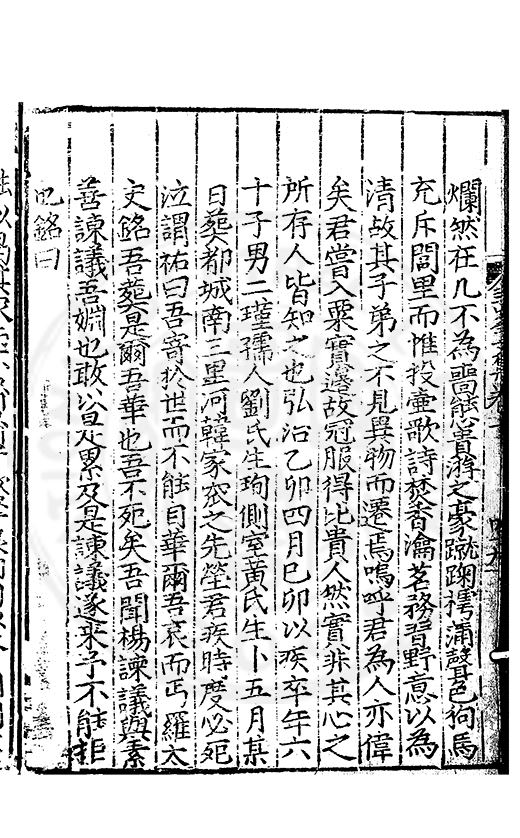 爛然在几不為嗇能悉貴游之豪蹴踘摴蒱聲色狗馬
充斥閭里而惟投壷歌詩焚香瀹茗務習野意以為
清故其子弟之不見異物而遷焉嗚呼君為人亦偉
矣君嘗入粟實邊故冠服得比貴人然實非其心之
所存人皆知之也弘治乙卯四月巳卯以疾卒年六
十子男二瑾孺人劉氏生珣側室黄氏生卜五月某
日葬都城南三里河韓家𡨴之先塋君疾時度必死
泣謂祐曰吾寄扵世而不能自華爾吾哀而丐羅太
史銘吾葬是爾吾華也吾不死矣吾聞楊諫議與素
善諫議吾婣也敢以是累及是諫議遂来予不能拒
也銘曰